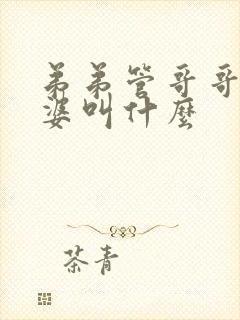 弟弟管哥哥
婆叫什麼
茶青